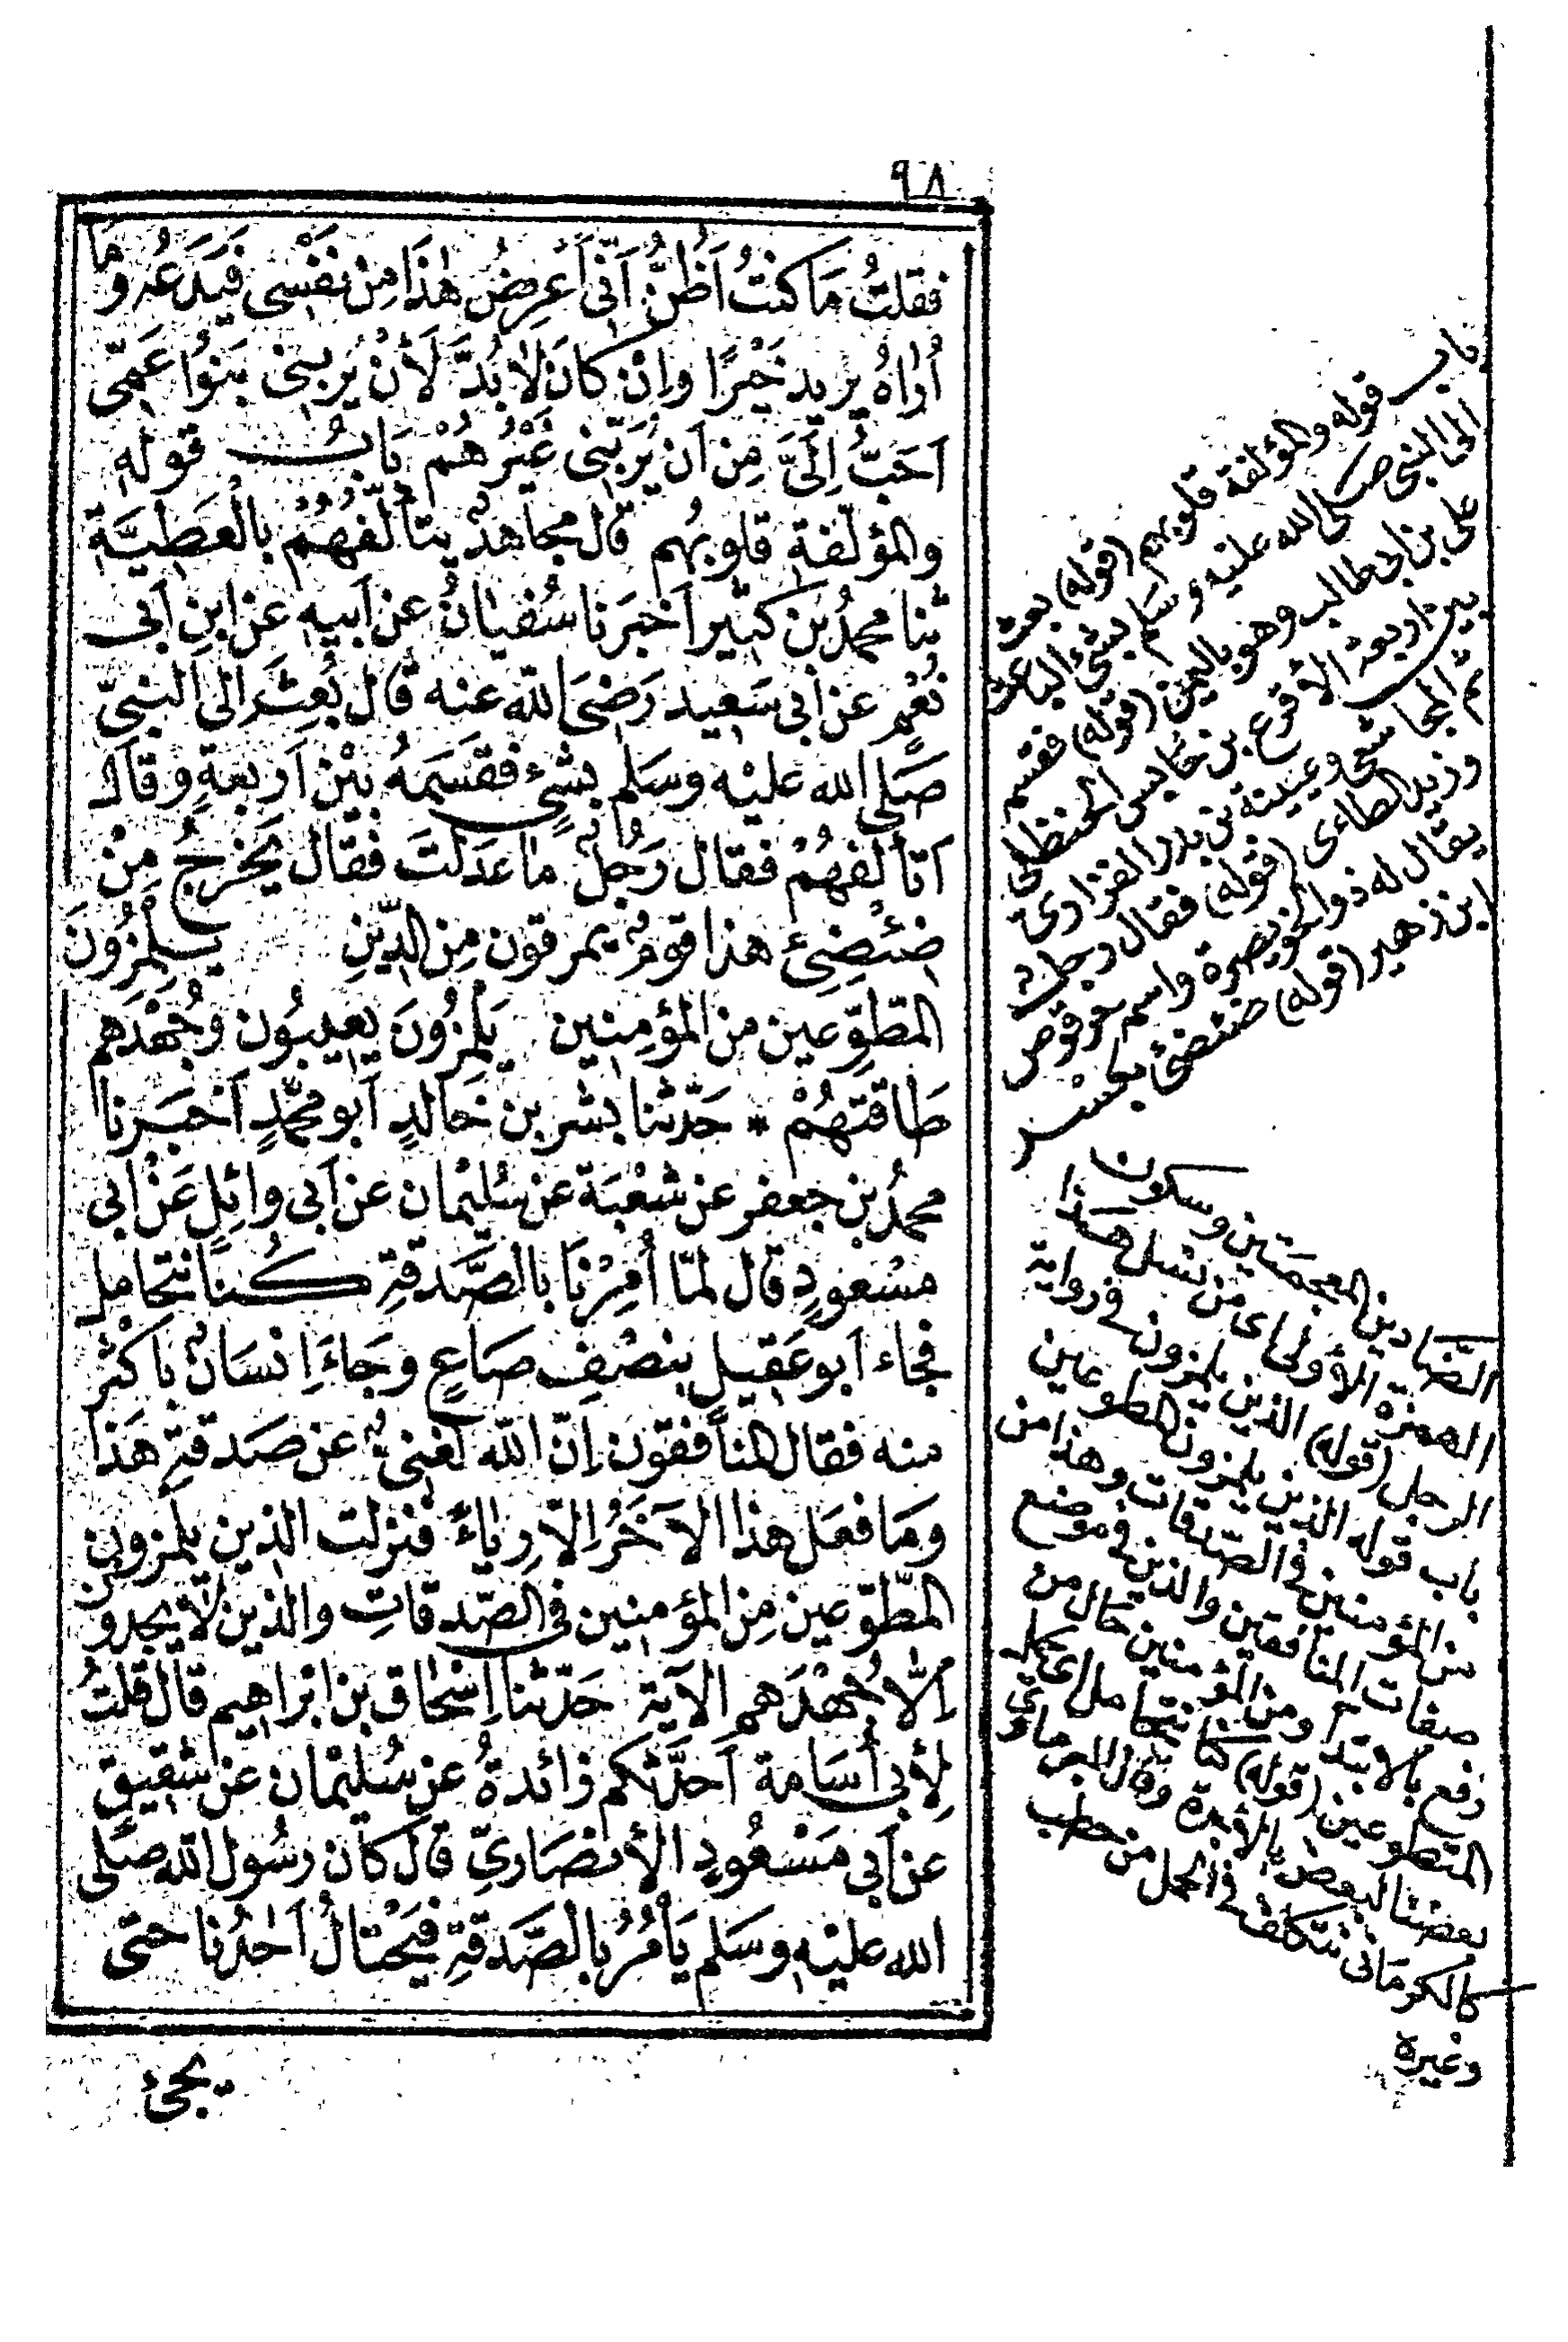 ٩٨
فقلتُ مَا كنتُ اَظُنُّ اَنّى اَعْرِضُ هٰذَا مِن نفَسْى فيَدَعُه وَمَا
اُرٰاهُ يريد خَيْرًا وَاِنْ كانَ لاٰبُدَّ لَاَنْ يَرُبنى بَنوُا عَمِّى
اَحَبُّ اِلَىَّ مِن اَن يَرُبَّنى غَيْرُهُمْ بَابُ قوله
والمؤلّفة قلوبُهم قال مجاهدٌ يتألّفهُمْ بالْعَطِيَّة
ثنا محمدُ بن كثير اَخبَرَنا سُفيٰانُ عن اَبيه عن ابنِ اَبى
نُعْمٍ عن اَبى سَعيد رَضىَ الله عنه قال بُعِثَ الى النبىّ
صَلى الله عليْه وسَلم بشئٍ فقسَمَهُ بيْن اَربعةٍ وقال
اَتألفهُمْ فقال رَجُلٌ مٰا عدَلتَ فقال يَخرجُ مِنْ
ضئضِئِ هذا قومٌ يمرقون مِن الدّينِ يَلمِزُونَ
المطّوّعين من المؤمِنين يَلْمِزُونَ يعيبُون وجُهْدَهم
طَاقتهُمْ * حَدّثنا بشر بن خَالدٍ اَبو محمّدٍ اَخبَرنا
محمدُ بن جعفر عن شعْبَة عن سُليْمان عن اَبى وائلٍ عَنْ اَبى
مسْعودٍ قال لمّا اُمِرْنَا بالصَّدقةِ كُنّا نتحَامل
فجاء اَبو عَقيل بنصْفِ صَاعٍ وجَاءَ اِنسَانٌ باَكثر
منه فقال المنافقون اِنّ الله لغنىٌّ عن صَدقةِ هَذا
ومَا فعَل هذا الآخَرُ اِلاّ رِياءً فنزلت الذين يلمزون
المطّوّعين مِن المؤمنين فى الصّدقاتِ والذين لاٰ يجدون
اِلاّ جُهْدَهم الآية حَدّثنا اِسْحٰاق بن اِبْراهيم قال قلتُ
لِأبى أُسَامة اَحدَّثكم زائدةُ عن سُليْمان عن شقيقٍ
عن اَبى مَسْعُودٍ الأنصَارىّ قال كان رسُول الله صَلى
الله عليْه وسَلم يَأمُرُ بالصَّدقةِ فيَحْتالُ اَحَدُنا حتى
يجئ
باب قوله والمؤلفة قلوبهم (قوله) بعث
الى النبى صلى الله عليه وسلم بشئ الباعث
على بن ابى طالب وهو باليمن (قوله) فقسمه
بين اربعة الأقرع بن حابس الحنظلى
ثم المجاشعى وعيينة بن بدر الفزارى
وزيد الطاءى (قوله) فقال رجل
يقال له ذو الخويصرة واسمه حرقوص
ابن زهير (قوله) ضئضئ بكسر
الضادين المعجمتين وسكون
الهمزة الأولى اى من نسل هذا
الرجل (قوله) الذين يلمزون فى رواية
باب قوله الذين يلمزون المطوعين
من المؤمنين فى الصّدقات وهذا من
صفات المنافقين والذين فى موضع
رفع بالابتدا ومن المؤمنين حال من
المتطوعين (قوله) كنا نتحامل اى يحمل
بعضنا لبعض بالأجرة وقال البرماوى
كالكرمانى نتكلف فى الحمل من حطب
وغيره